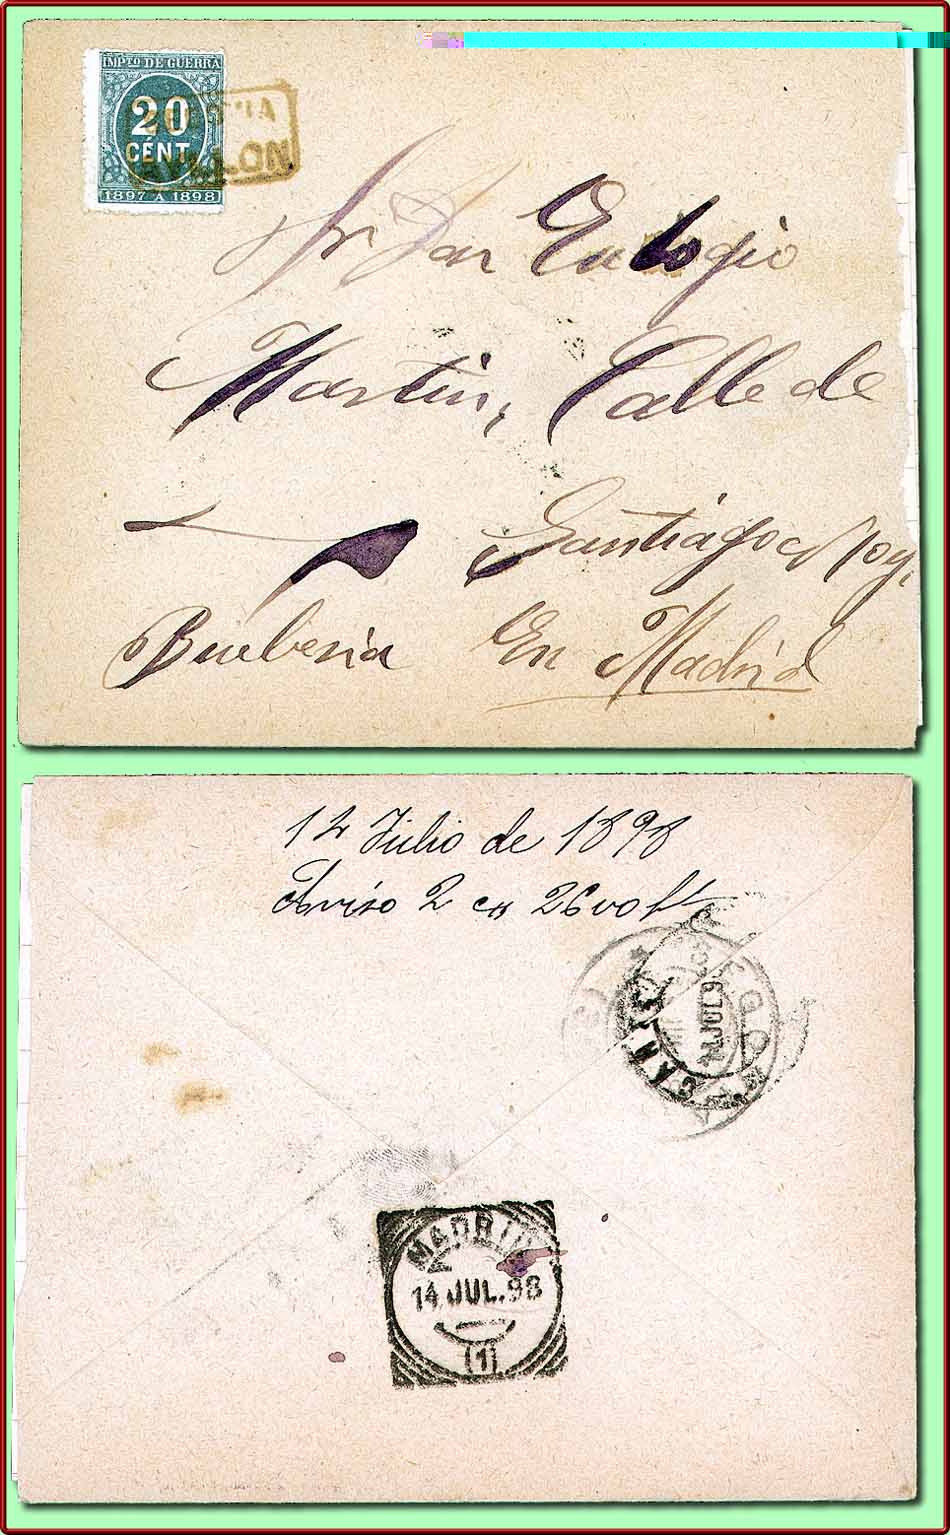 IMPTO DE GUERRA
20
CÉNT.
1897 A 1898
Sr Don Eulogio
Martin, Calle de
Santiago
Barberia En Madrid
12 Julio de 1898
Aviso 2
JUL 9
MADRID
14 JUL. 98
(1)